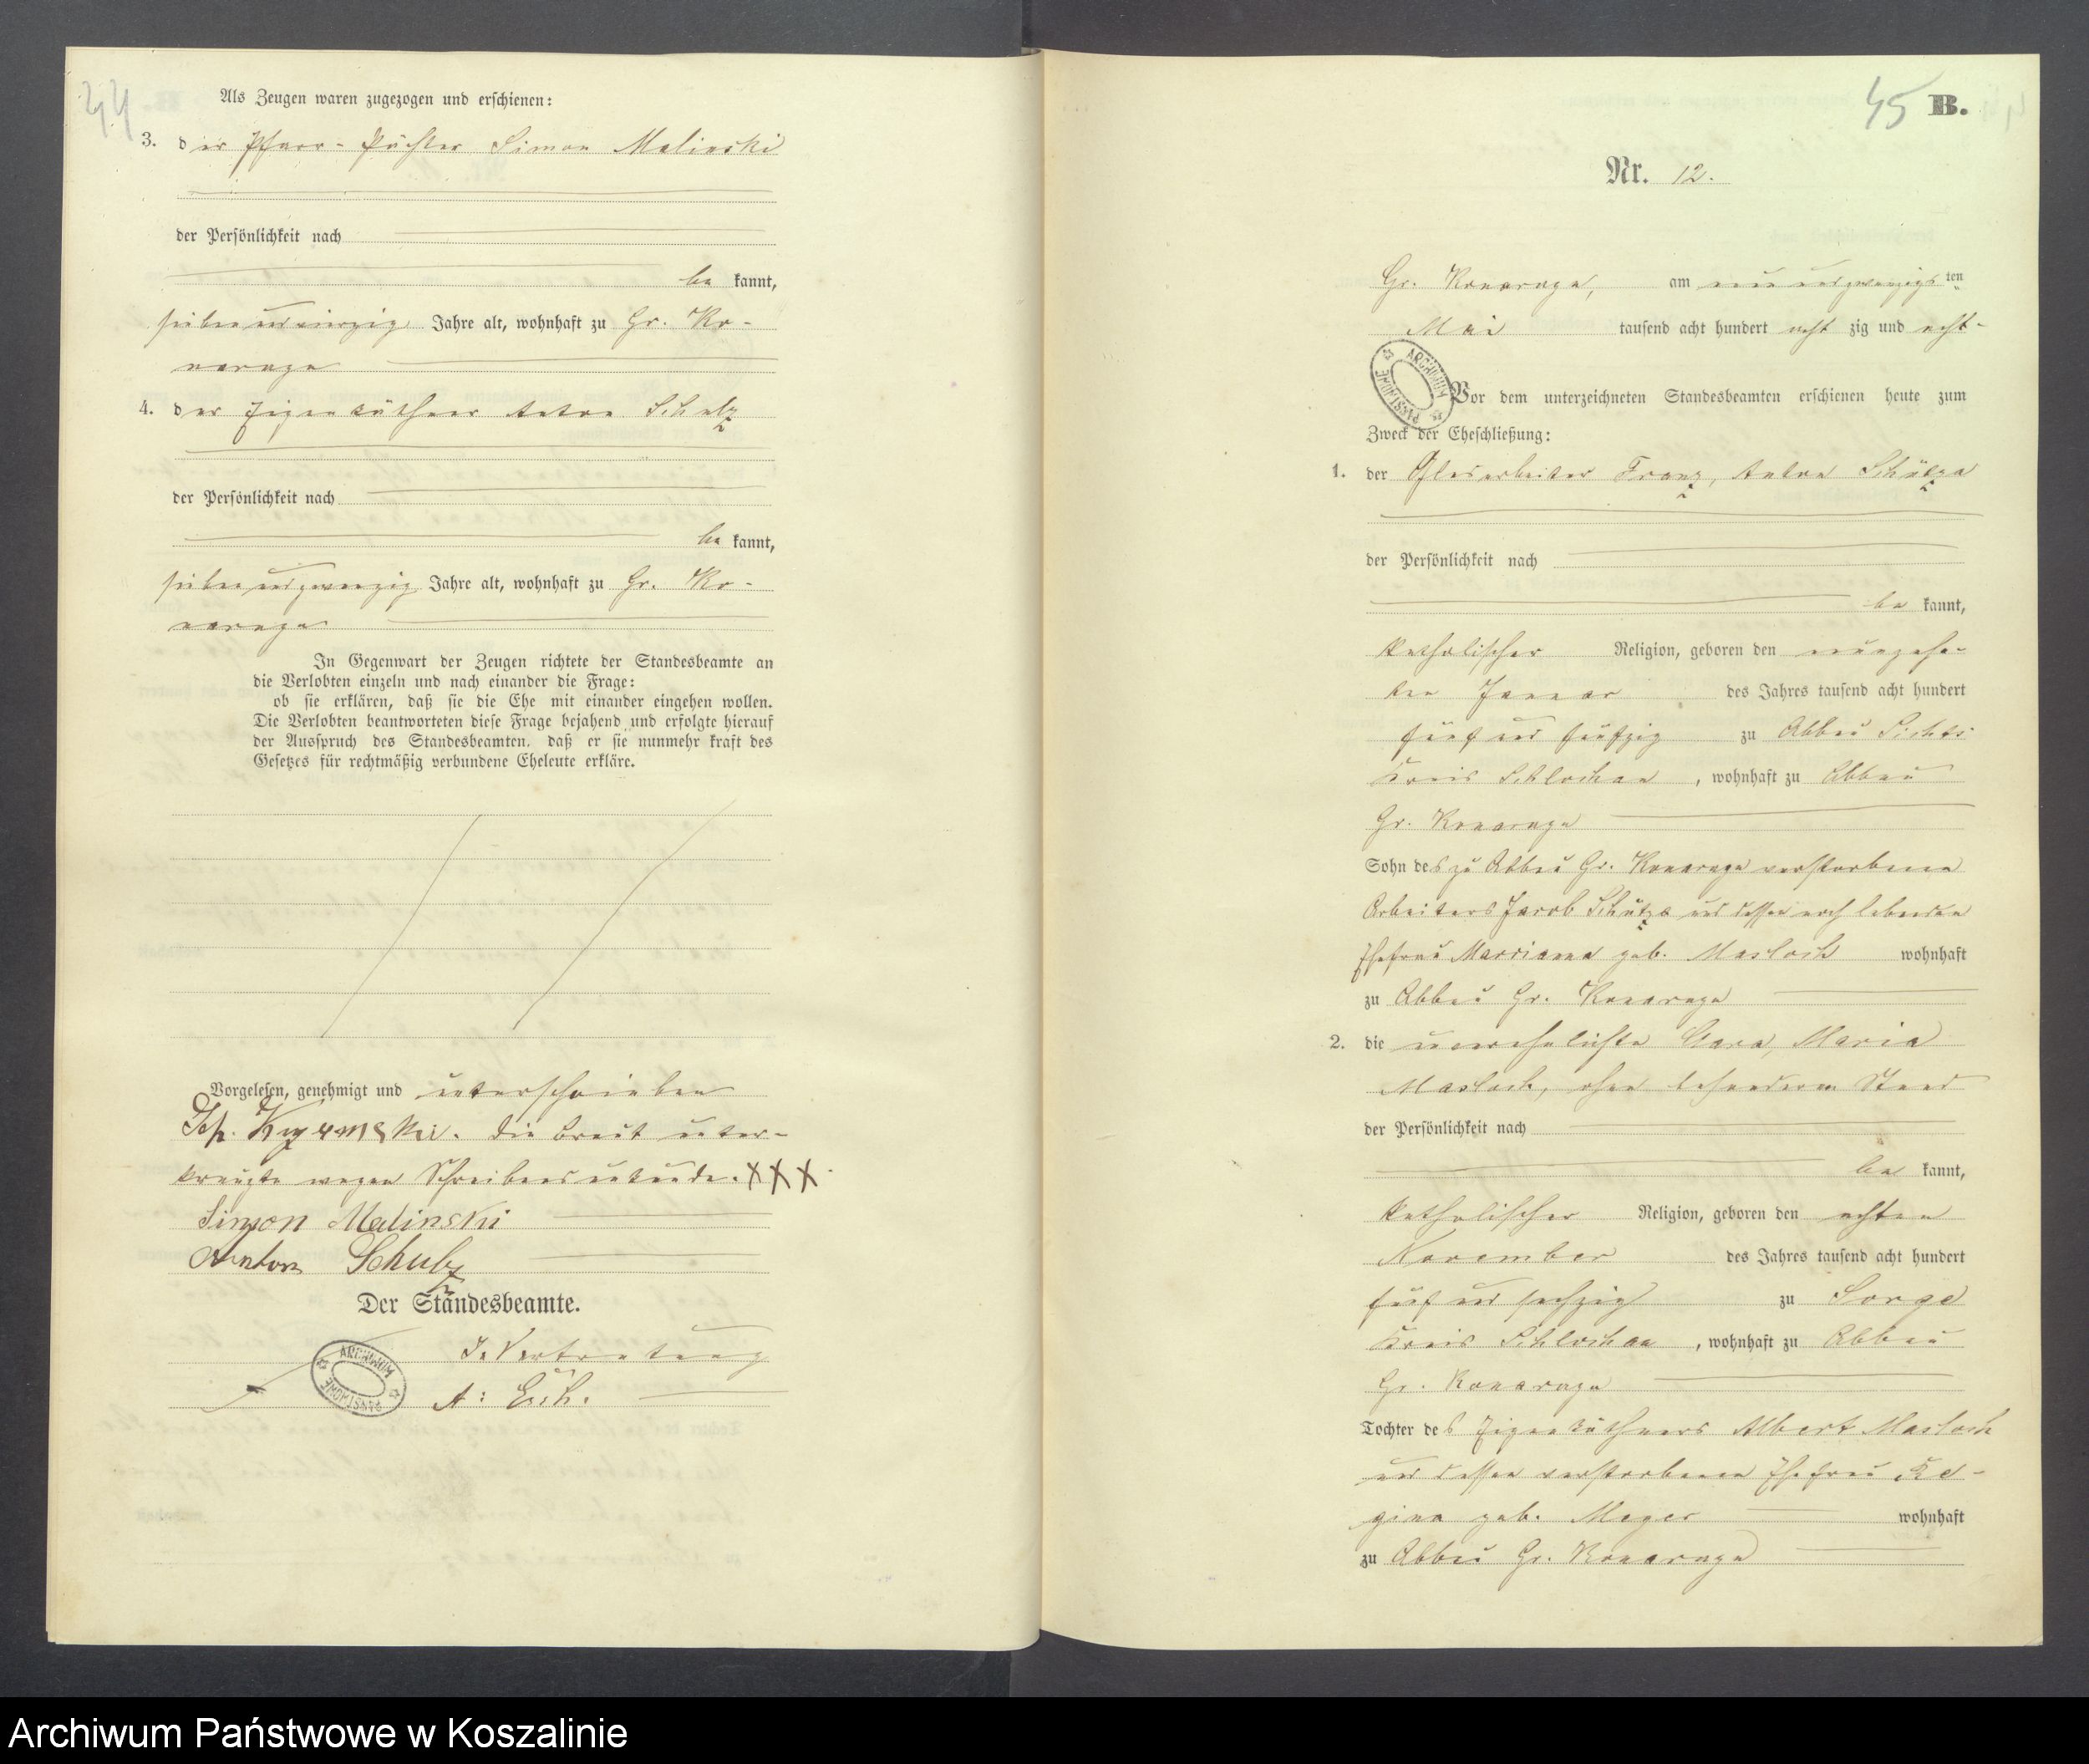 44
Als Zeugen waren zugezogen und erschienen:
3. der Pfarr-Pächter Simon Malinski
der Persönlichkeit nach
be kannt,
siebenundvierzig Jahre alt, wohnhaft zu Gr. Ko-
narzyn
4. der Eigenkäthner Anton Schulz
der Persönlichkeit nach
be kannt,
siebenundzwanzig Jahre alt, wohnhaft zu Gr. Ko-
In Gegenwart der Zeugen richtete der Standesbeamte an
die Verlobten einzeln und nach einander die Frage:
ob sie erklären, daß sie die Ehe mit einander eingehen wollen.
Die Verlobten beantworteten diese Frage bejahend und erfolgte hierauf
der Ausspruch des Standesbeamten, daß er sie nunmehr kraft des
Gesetzes für rechtmäßig verbundene Eheleute erkläre.
Vorgelesen, genehmigt und unterschrieben
Die Braut unter-
kreuzte wegen Schreibensunkunde. XXX.
Simon Malinski
Anton Schulz
Der Standesbeamte.
In Vertretung
A:
ARCHIWUM PAŃSTWOWE
45 B.
Nr. 12.
Gr. am neunundzwanzigsten
Mai tausend acht hundert acht zig und acht-
ARCHIWUM PAŃSTWOWE
Vor dem unterzeichneten Standesbeamten erschienen heute zum
Zweck der Eheschließung:
1. der Glasarbeiter Franz, Anton Schütza
der Persönlichkeit nach
be kannt,
katholischer Religion, geboren den neunzehn-
ten Januar des Jahres tausend acht hundert
fünf und fünfzig zu Abbau
Kreis Schlochau, wohnhaft zu Abbau
Gr.
Sohn des zu Abbau Gr. verstorbenen
Arbeiters Jacob Schütza und dessen noch lebenden
Ehefrau Marrianna geb. Masloch wohnhaft
zu Abbau Gr.
2. die unverehelichte Clara, Maria
Masloch, ohne besonderen Stand
der Persönlichkeit nach
be kannt,
katholischer Religion, geboren den achten
November des Jahres tausend acht hundert
fünf und sechzig zu Sorge
Kreis Schlochau, wohnhaft zu Abbau
Gr.
Tochter des Eigenkäthners Albert Masloch
und dessen verstorbenen Ehefrau Re-
gina geb. wohnhaft
zu Abbau Gr.
Archiwum Państwowe w Koszalinie